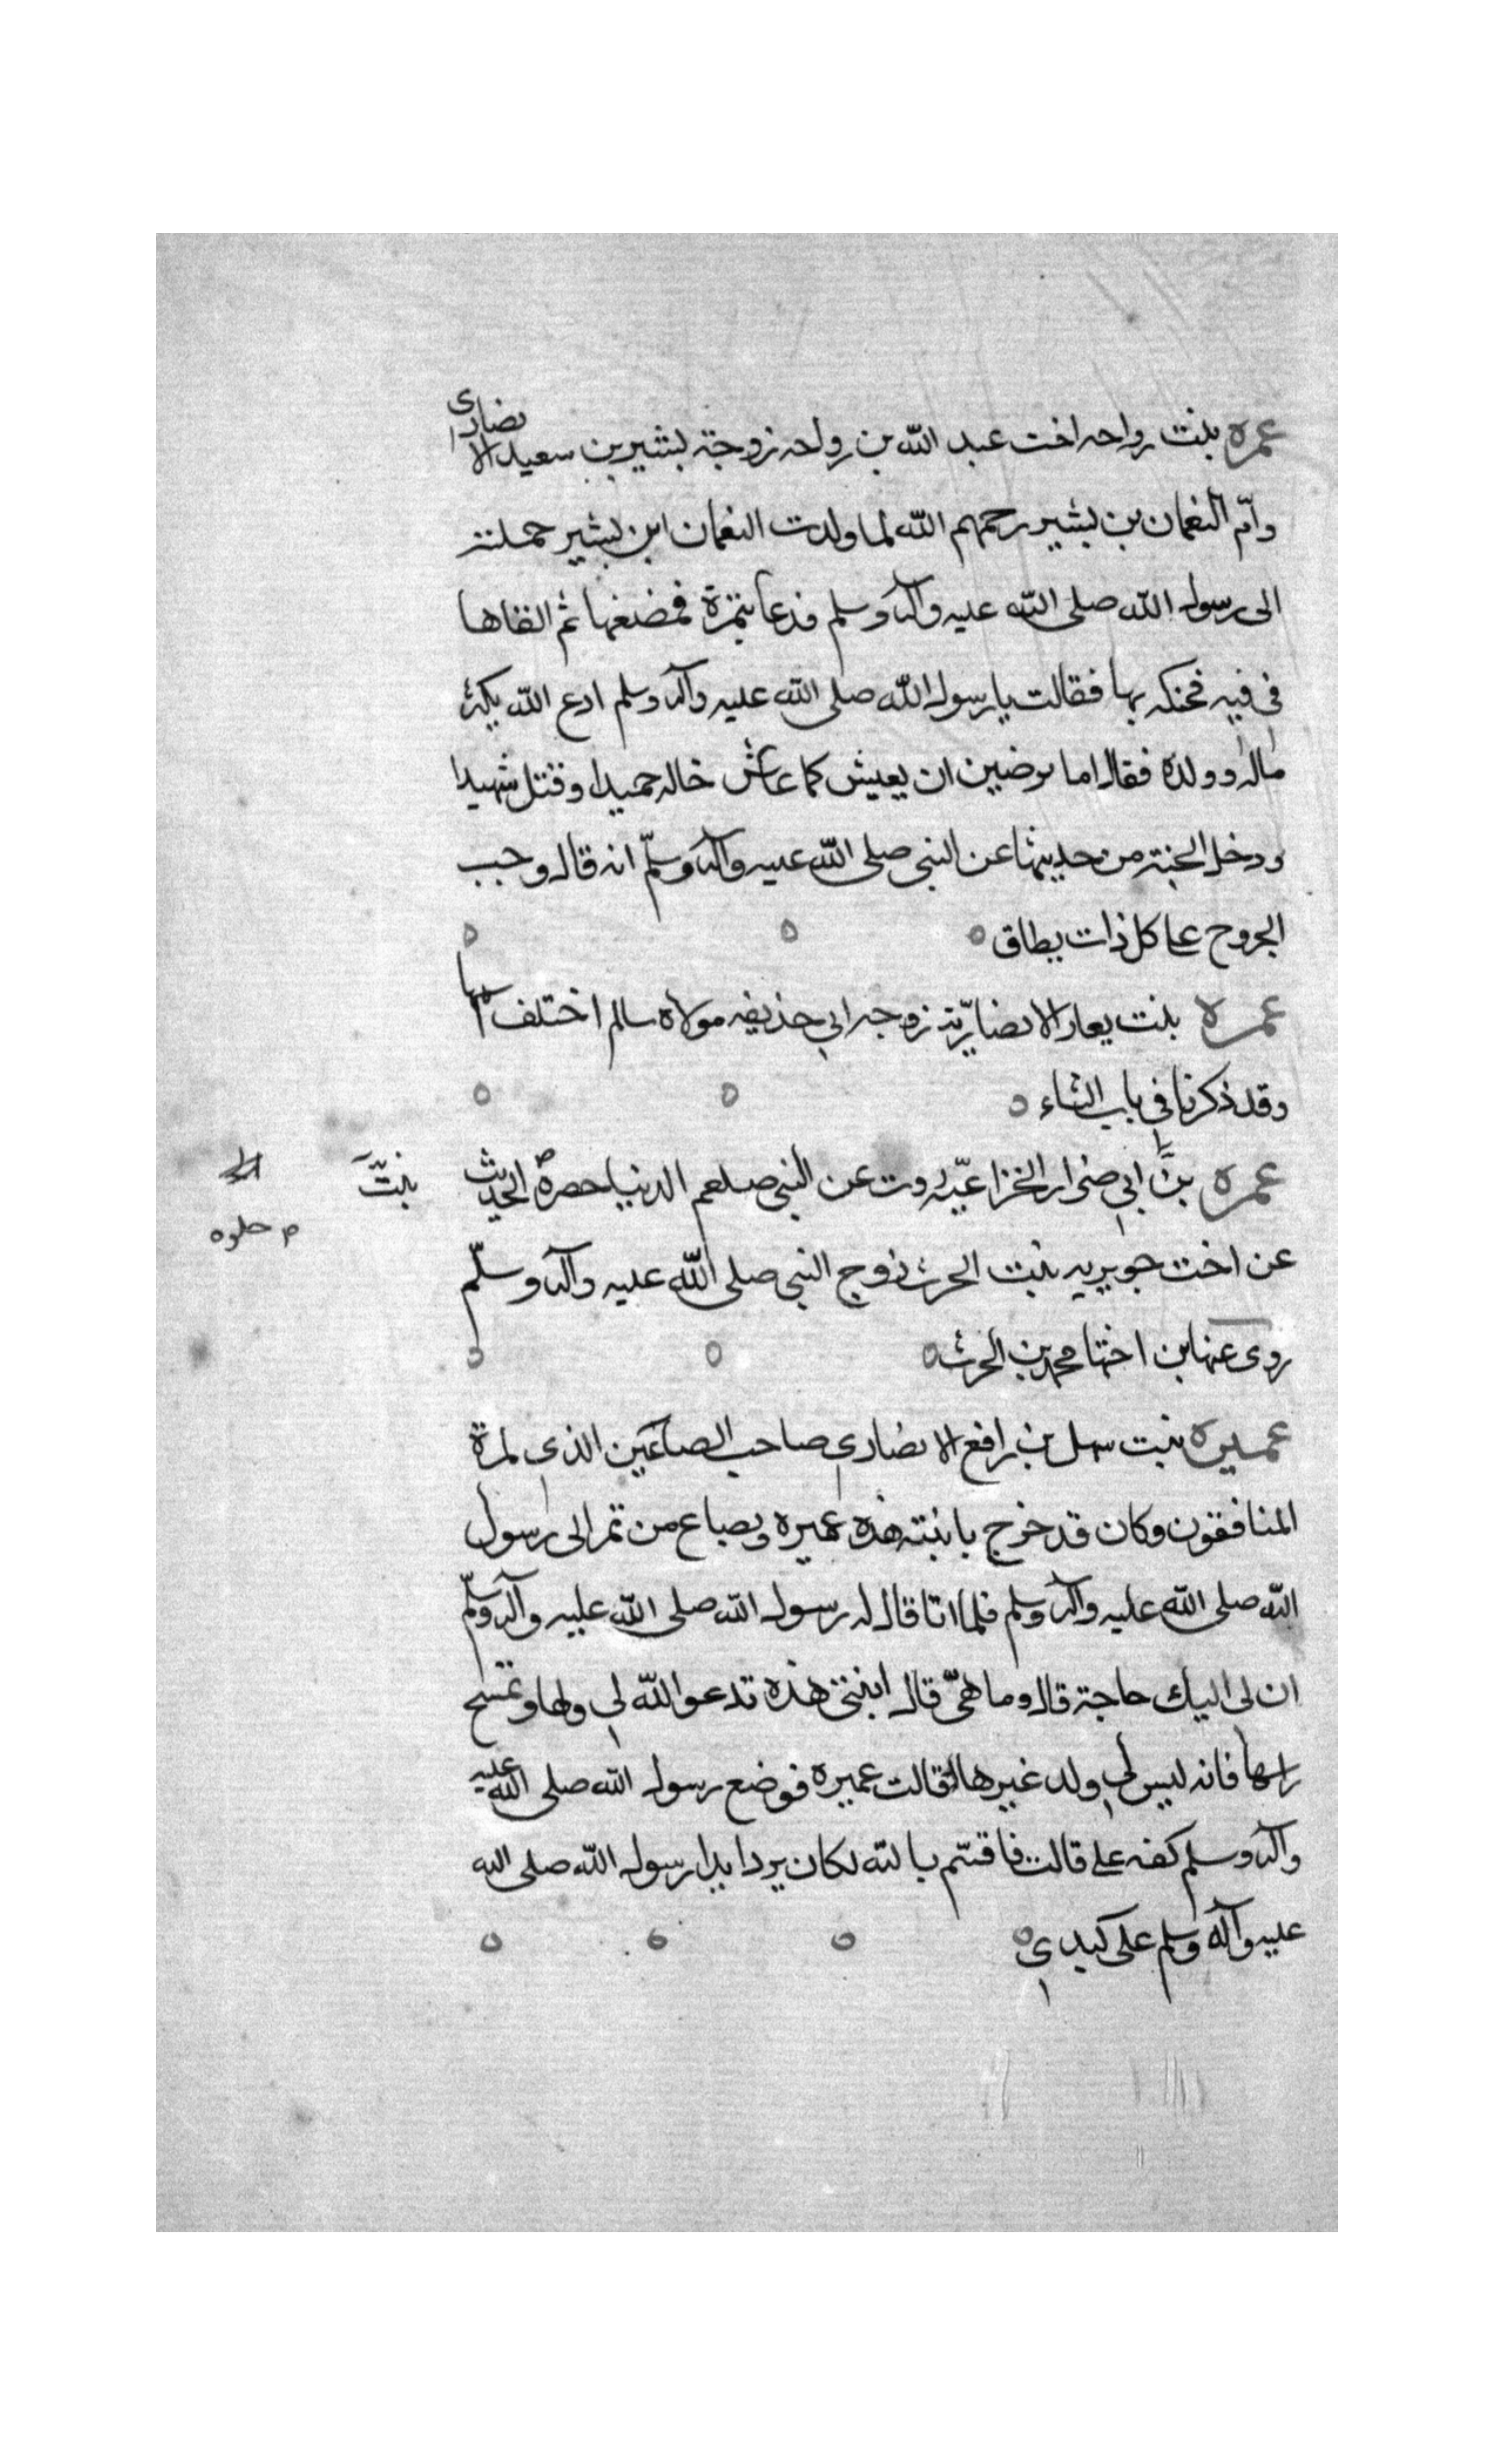 عمره بنت رواحه اخت عبد الله بن رواحه زوجة بشير بن سعيد الانصارى
وامّ النعمان بن بشير رحمهم الله لما ولدت النعمان ابن بشير حملته
الى رسول الله صلى الله عليه وآله وسلم فدعا بتمرة فمضغها ثم القاها
فى فيه فحنكه بها فقالت يا رسول الله صلى الله عليه وآله وسلم ادع الله يكثر
ماله وولده فقال اما ترضين ان يعيش كما عاش خاله حميدا وقتل شهيدا
ودخل الجنة من حديثها عن النبى صلى الله عليه وآله وسلّم انه قال وجب
الخروج على كل ذات نطاق
عمره بنت يعار الانصاريّة زوجه ابي حذيفه مولاة سالم اختلف اسمها
وقد ذكرنا في باب الثاء
عمره بنت ابي ضرار الخزاعيّه روت عن النبى صلعم الدنيا حصرة الحديث
بنت
م حلوه
عن اخت جويريه بنت الحرث زوج النبى صلى الله عليه وآله وسلّم
روى عنها ابن اختها محمد بن الحرث
عميره بنت سهل بن رافع الانصاري صاحب الصاعين الذي لمزة
المنافقون وكان قد خرج بابنته هذه عميره وبصاع من تمر الى رسول
الله صلى الله عليه وآله وسلم فلما اتا قال له رسول الله صلى الله عليه وآله وسلّم
ان لى اليك حاجة قال وما هيّ قال ابنتى هذه تدعوا الله لي ولها وتمسح
راسها فانه ليس لي ولد غيرها قالت عميره فوضع رسول الله صلى الله عليه
وآله وسلم كفه على قالت فاقسّم بالله لكان بردا يدا رسول الله صلى الله
عليه وآله وسلم على كبدي